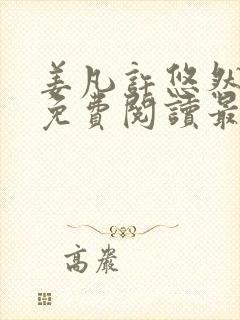 姜凡許悠然
免費閱讀最
高嚴